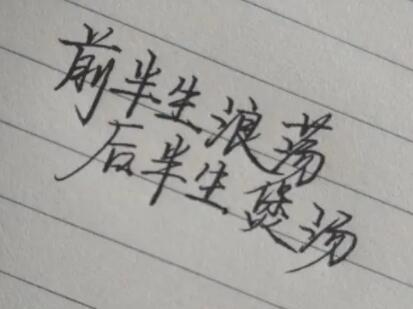 前半生浪荡
后半生煲汤